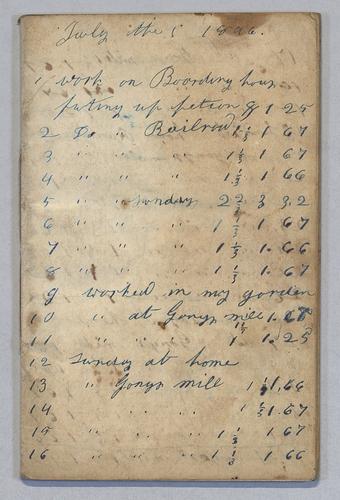 July the 5 1896.
1 work on Boarding hous
puting up petion & 1 25
2 Do " Railroad 1 1/3 1 67
3 " " " 1 1/3 1 67
4 " " " 1 1/3 1 66
5 " " Sunday 2 2/3 3 32
6 " " " 1 1/3 1 67
7 " " " 1 1/3 1.66
8 " " " 1 1/3 1.67
9 worked in my garden
10 " at Gonys mill 1.67
11 " " " 1 1.25
12 Sunday at home
13 " Gonys mill 1 1/3 1.66
14 " " " 1 1/3 1.67
15 " " " 1 1/3 1 67
16 " " " 1 1/3 1 66